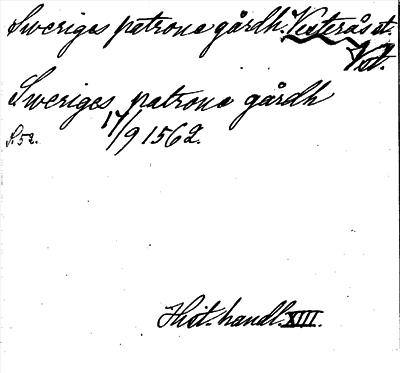 Sweriges patrone gårdh. Vesterås st.
Vstl.
Sweriges patrone gårdh
S. 52. 17/9 1562.
Hist. handl. XIII.